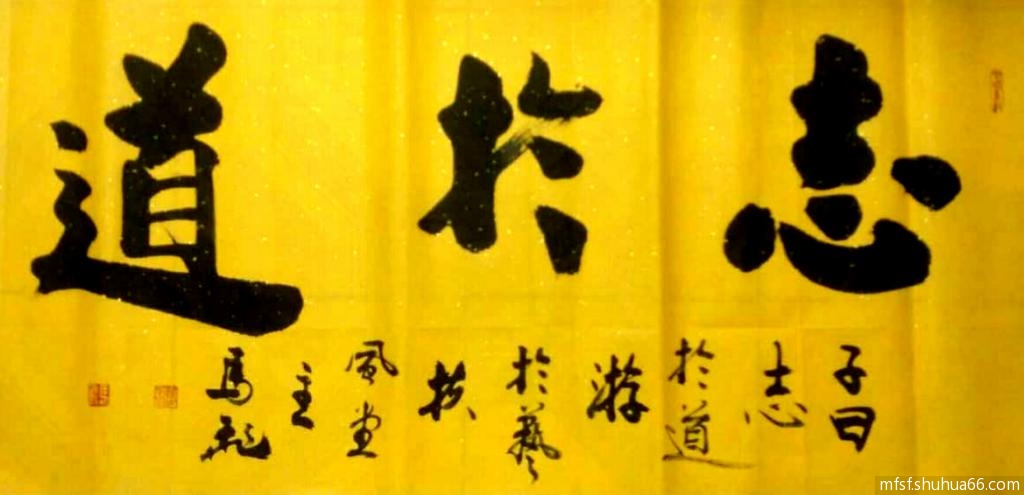 志於道
子曰
志
於道
游
於藝
扶
風堂
主
馬飛
mfsf.shuhua66.com